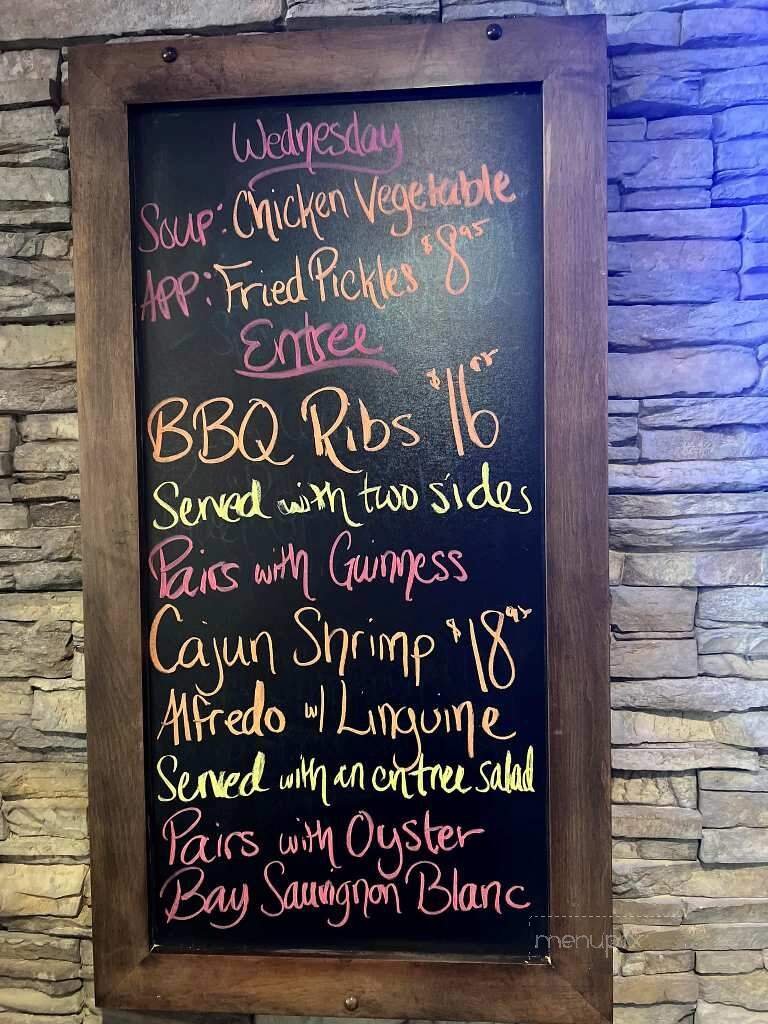 Wednesday
Soup: Chicken Vegetable
App: Fried Pickles $8.95
Entree
BBQ Ribs $16.95
Served with two sides
Pairs with Guinness
Cajun Shrimp $18.95
Alfredo w/ Linguine
Served with an entree salad
Pairs with Oyster
Bay Sauvignon Blanc
menupix